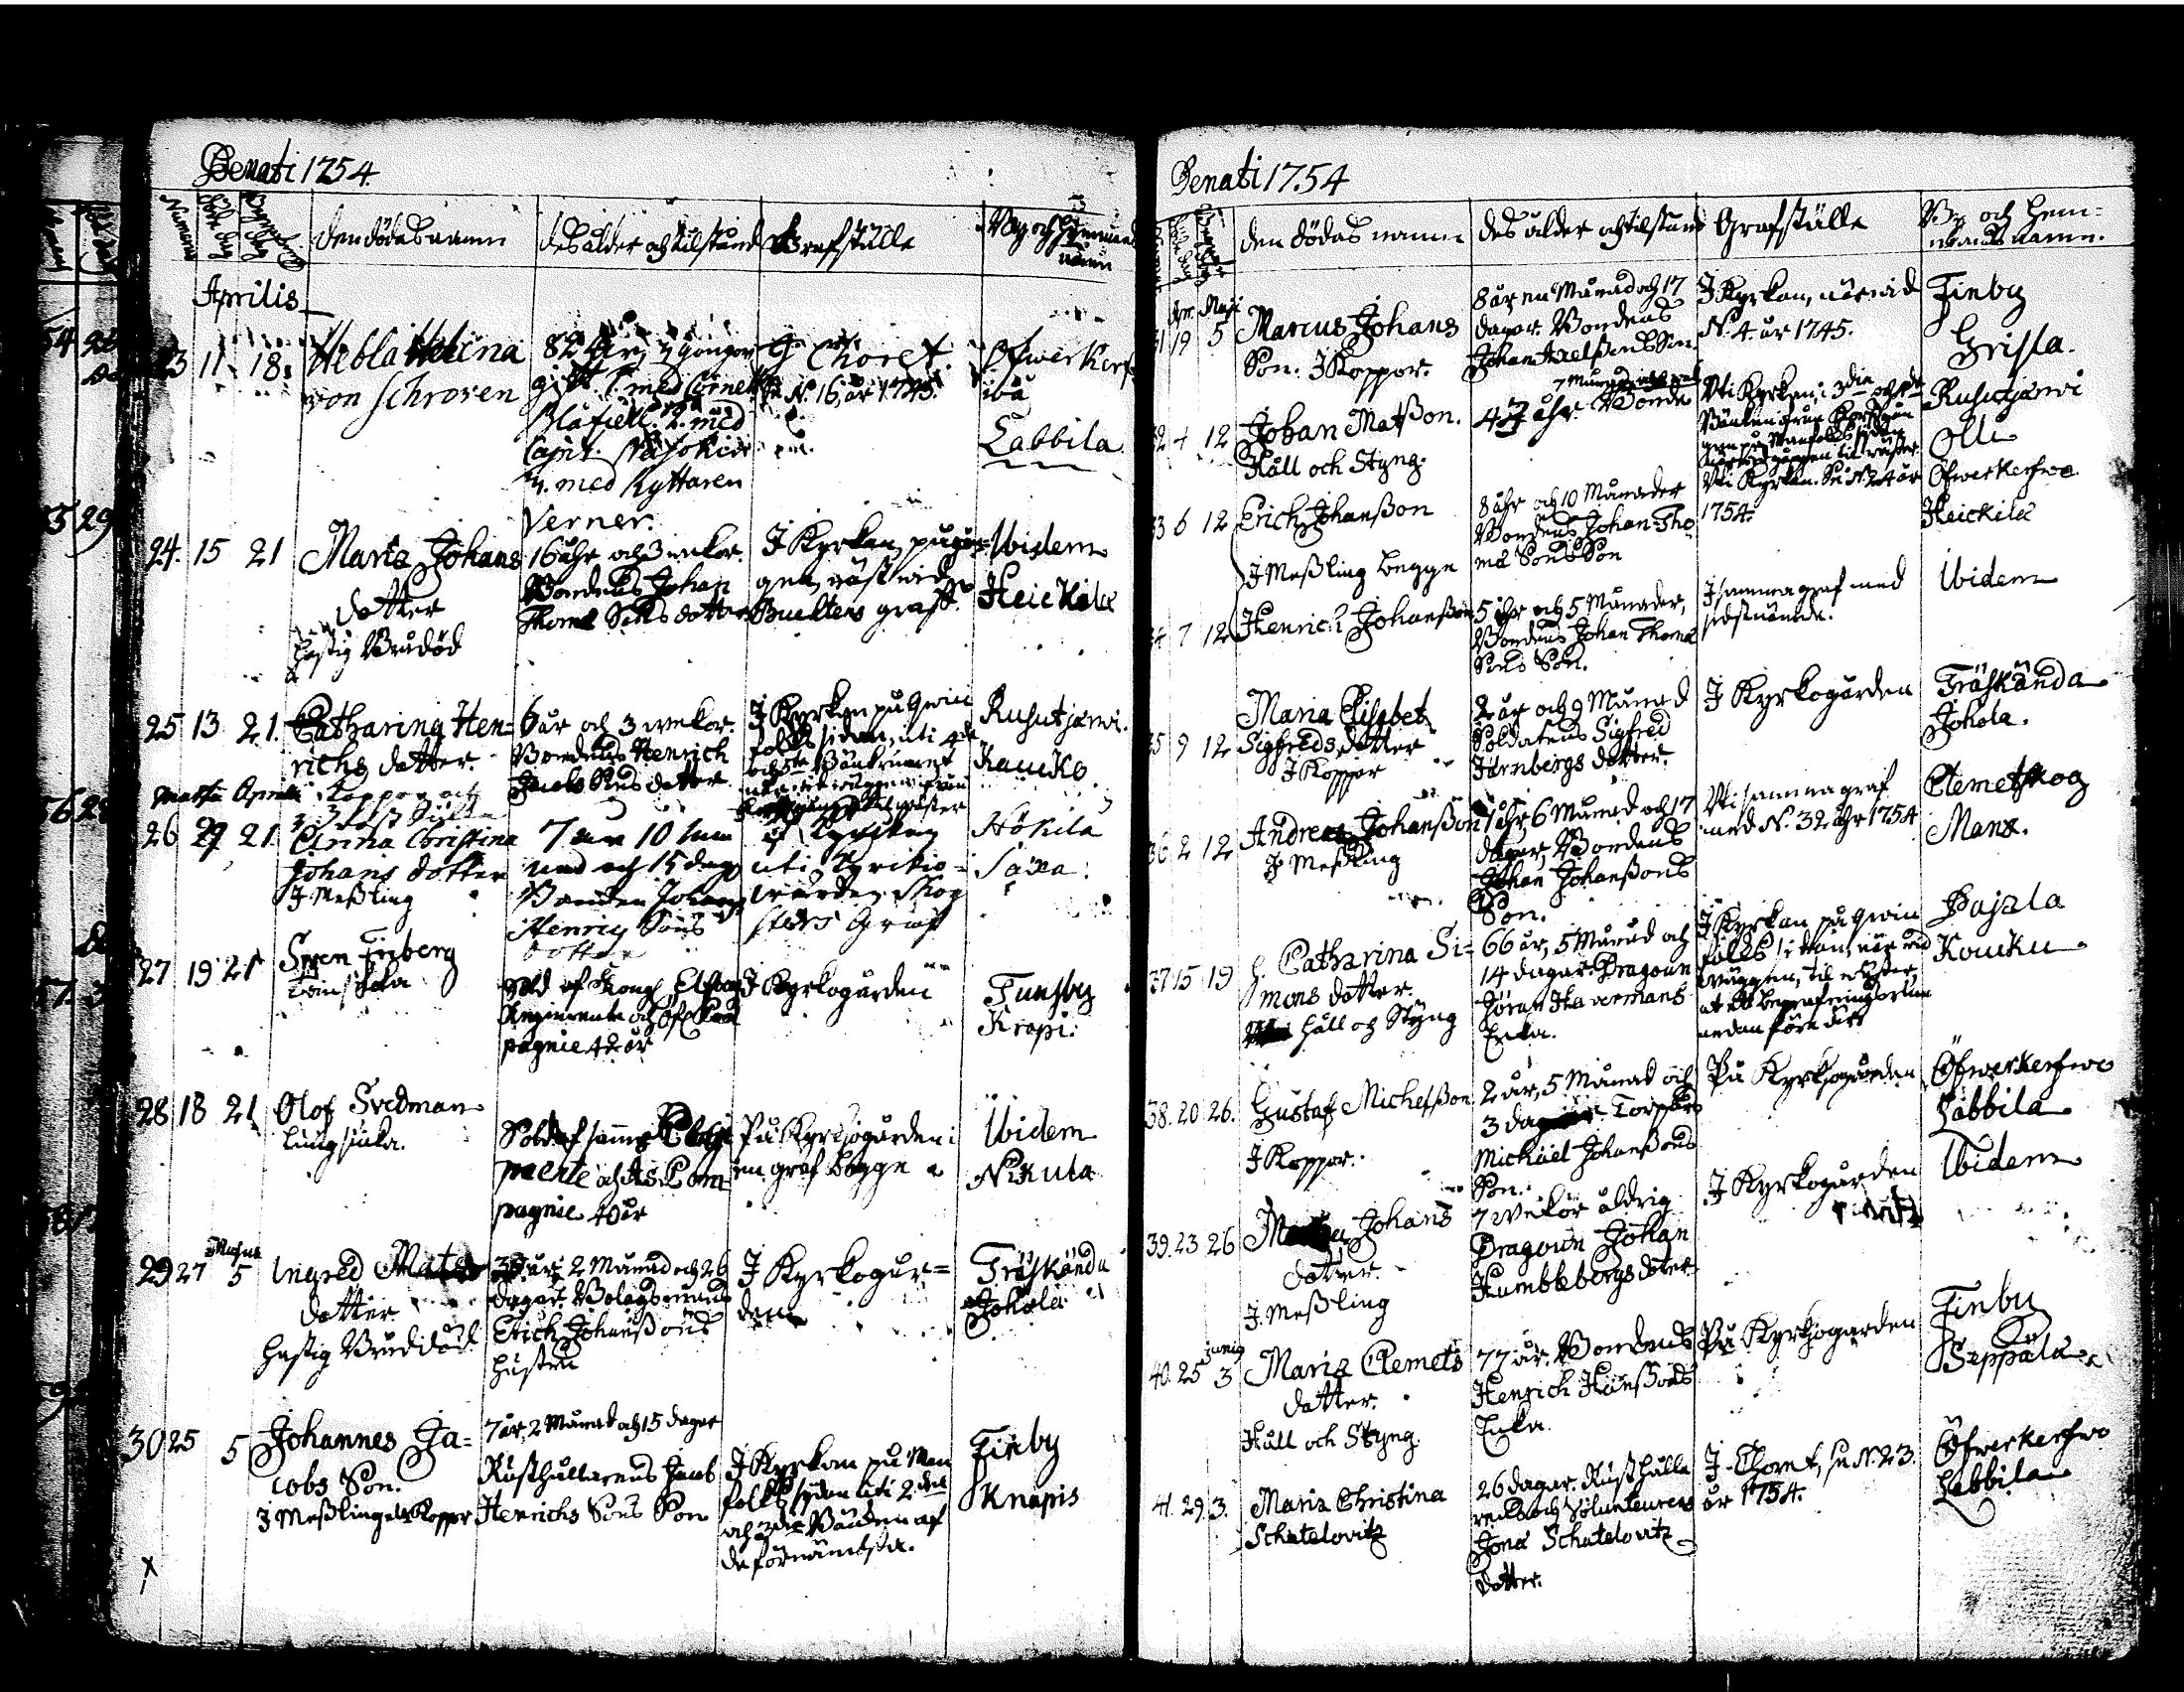 Denati 1754.
Numerus
den dödas namn
des ålder och tilstånd
Grafställe
By och Hemmans namn
Aprilis
23 11 18
Hebla Helena
von Schroven
82 åhr, 3 gånger
gift 1. med Cornet
Blåfield. 2. med
Capit.
3. med Ryttaren
Verner.
J Choret
se N. 16, år 1745.
Ofwerkerf
wå
Labbila
24. 15 21
Maria Johans
dotter
hastig Brådöd
16 åhr och 3 wekor.
Bondens Johan
Thomæ Sons dotter
J Kyrkan på gån-
gen, näst wid
Bueltens graff.
Ibidem
Heickilä
25 13 21.
Catharina Hen-
richs dotter.
6 år och 3 wekor.
Bondens Henrich
Jacobs Sons dotter
J Kyrkan på Qwin
folks sidan, uti 4de
Rusutjärwi.
Kauko.
Martii Aprilis
26 27 21.
Anna Christina
Johans dotter
J Meßling
7 åhr 10 må
nad och 15 dag
Bonden Johan
Henrics Sons
dotter
J Kyrckan
uti Kyrckio-
wärden Skog
sters Graf
Hökila
Saxa.
27 19 21
Sven Finberg
Sold af Kongl Elfsborgs
Regimente och Öfw Com
pagnie 42 år
J Kyrkogården
Tunsby
Krapi.
28 18 21
Olof Svedman
Lungsiuka.
Sold af samma
och Com-
pagnie 40 år
På Kyrkiogården i
en graf begge
Ibidem
Nikula
29 27 5
Ingred Mats
dotter
hastig Bråddöd.
år, 2 Månad och 26
dagar. Bolagsmans
Erich Johanßons
hustru
J Kyrkogår-
den
Träskända
Johola
30 25 5
Johannes Ja-
cobs Son.
J Meßling och Koppor
7 år, 2 Månad och 15 dagar
Rusthållarens Jacob
Henrichs Sons Son
J Kyrkan på Man
folks sidan uti 2. dra
och 3die Bänken af
de förnämsta.
Finby
Knapis
Denati 1754
den dödas namn
des ålder och tilstånd
Grafställe
By och Hem-
mans namn.
Apr. Maji
31 19 5
Marcus Johans
Son. J Koppor.
8 år, en Månad och 17
dagar. Bondens
Johan Axelßons Son
J Kyrkan, när wid
N. 4 år 1745.
Finby
Grisla.
32 4 12
Johan Matßon.
Håll och Styng.
47 åhr. Bonde
Uti Kyrkan, i 3die och 4de
Rusutjärwi
Olli
33 6 12
Erich Johanßon
J Meßling begge
8 åhr och 10 Månader
Bondens Johan Tho-
mæ Sons Son
Uti Kyrkan. Se N. 24 år
1754.
Öfwerkerfwo
Heickilä
34 7 12
Henrich Johanßon
5 åhr och 5 Månader,
Bondens Johan Thomæ
Sons Son.
J samma graf med
sidstnämde.
Ibidem
35 9 12
Maria Elisabet
Sigfreds dotter
J Koppor
2 år och 9 Månad
Soldatens Sigfred
Järnbergs dotter.
J Kyrkogården
Träskända
Johola.
36 2 12
Andreas Johanßon
J Meßling
1 åhr, 6 Månad och 17
dagar, Bondens
Johan Johanßons
Son.
Uti samma graf
med N. 32 åhr 1754
Clemetskog
Manx.
37 15 19
h. Catharina Si-
mons dotter.
Håll och Styng
66 år, 5 Månad och
14 dagar. Dragoun
Jöran Havermans
Enka.
J Kyrkan på Qwin
folks sidan, när wid
wäggen, til wäster,
nedan före dörr
Pajala
Kouku
38. 20 26.
Gustaf Michelßon
J Koppor.
2 år, 5 Månad och
3 dagar. Torpare
Michael Johanßons
Son.
På Kyrkiogården
Öfwerkerfwo
Labbila
39. 23 26
Johans
dotter.
J Meßling
7 Wekor aldrig
Dragoun Johan
Humblebergs doter
J Kyrkogården
Ibidem
Junij
40. 25 3
Maria Clemets
dotter.
Håll och Styng.
77 år. Bondens
Henrich Hanßons
Enka.
På Kyrkiogården
Finby
Seppälä
41. 29. 3.
Maria Christina
Schatelovitz
26 dagar. Rusthålla
rens och Volunteurens
Jonæ Schatelovitz
dotter.
J Choret, se N. 23.
år 1754.
Öfwerkerfwo
Labbila